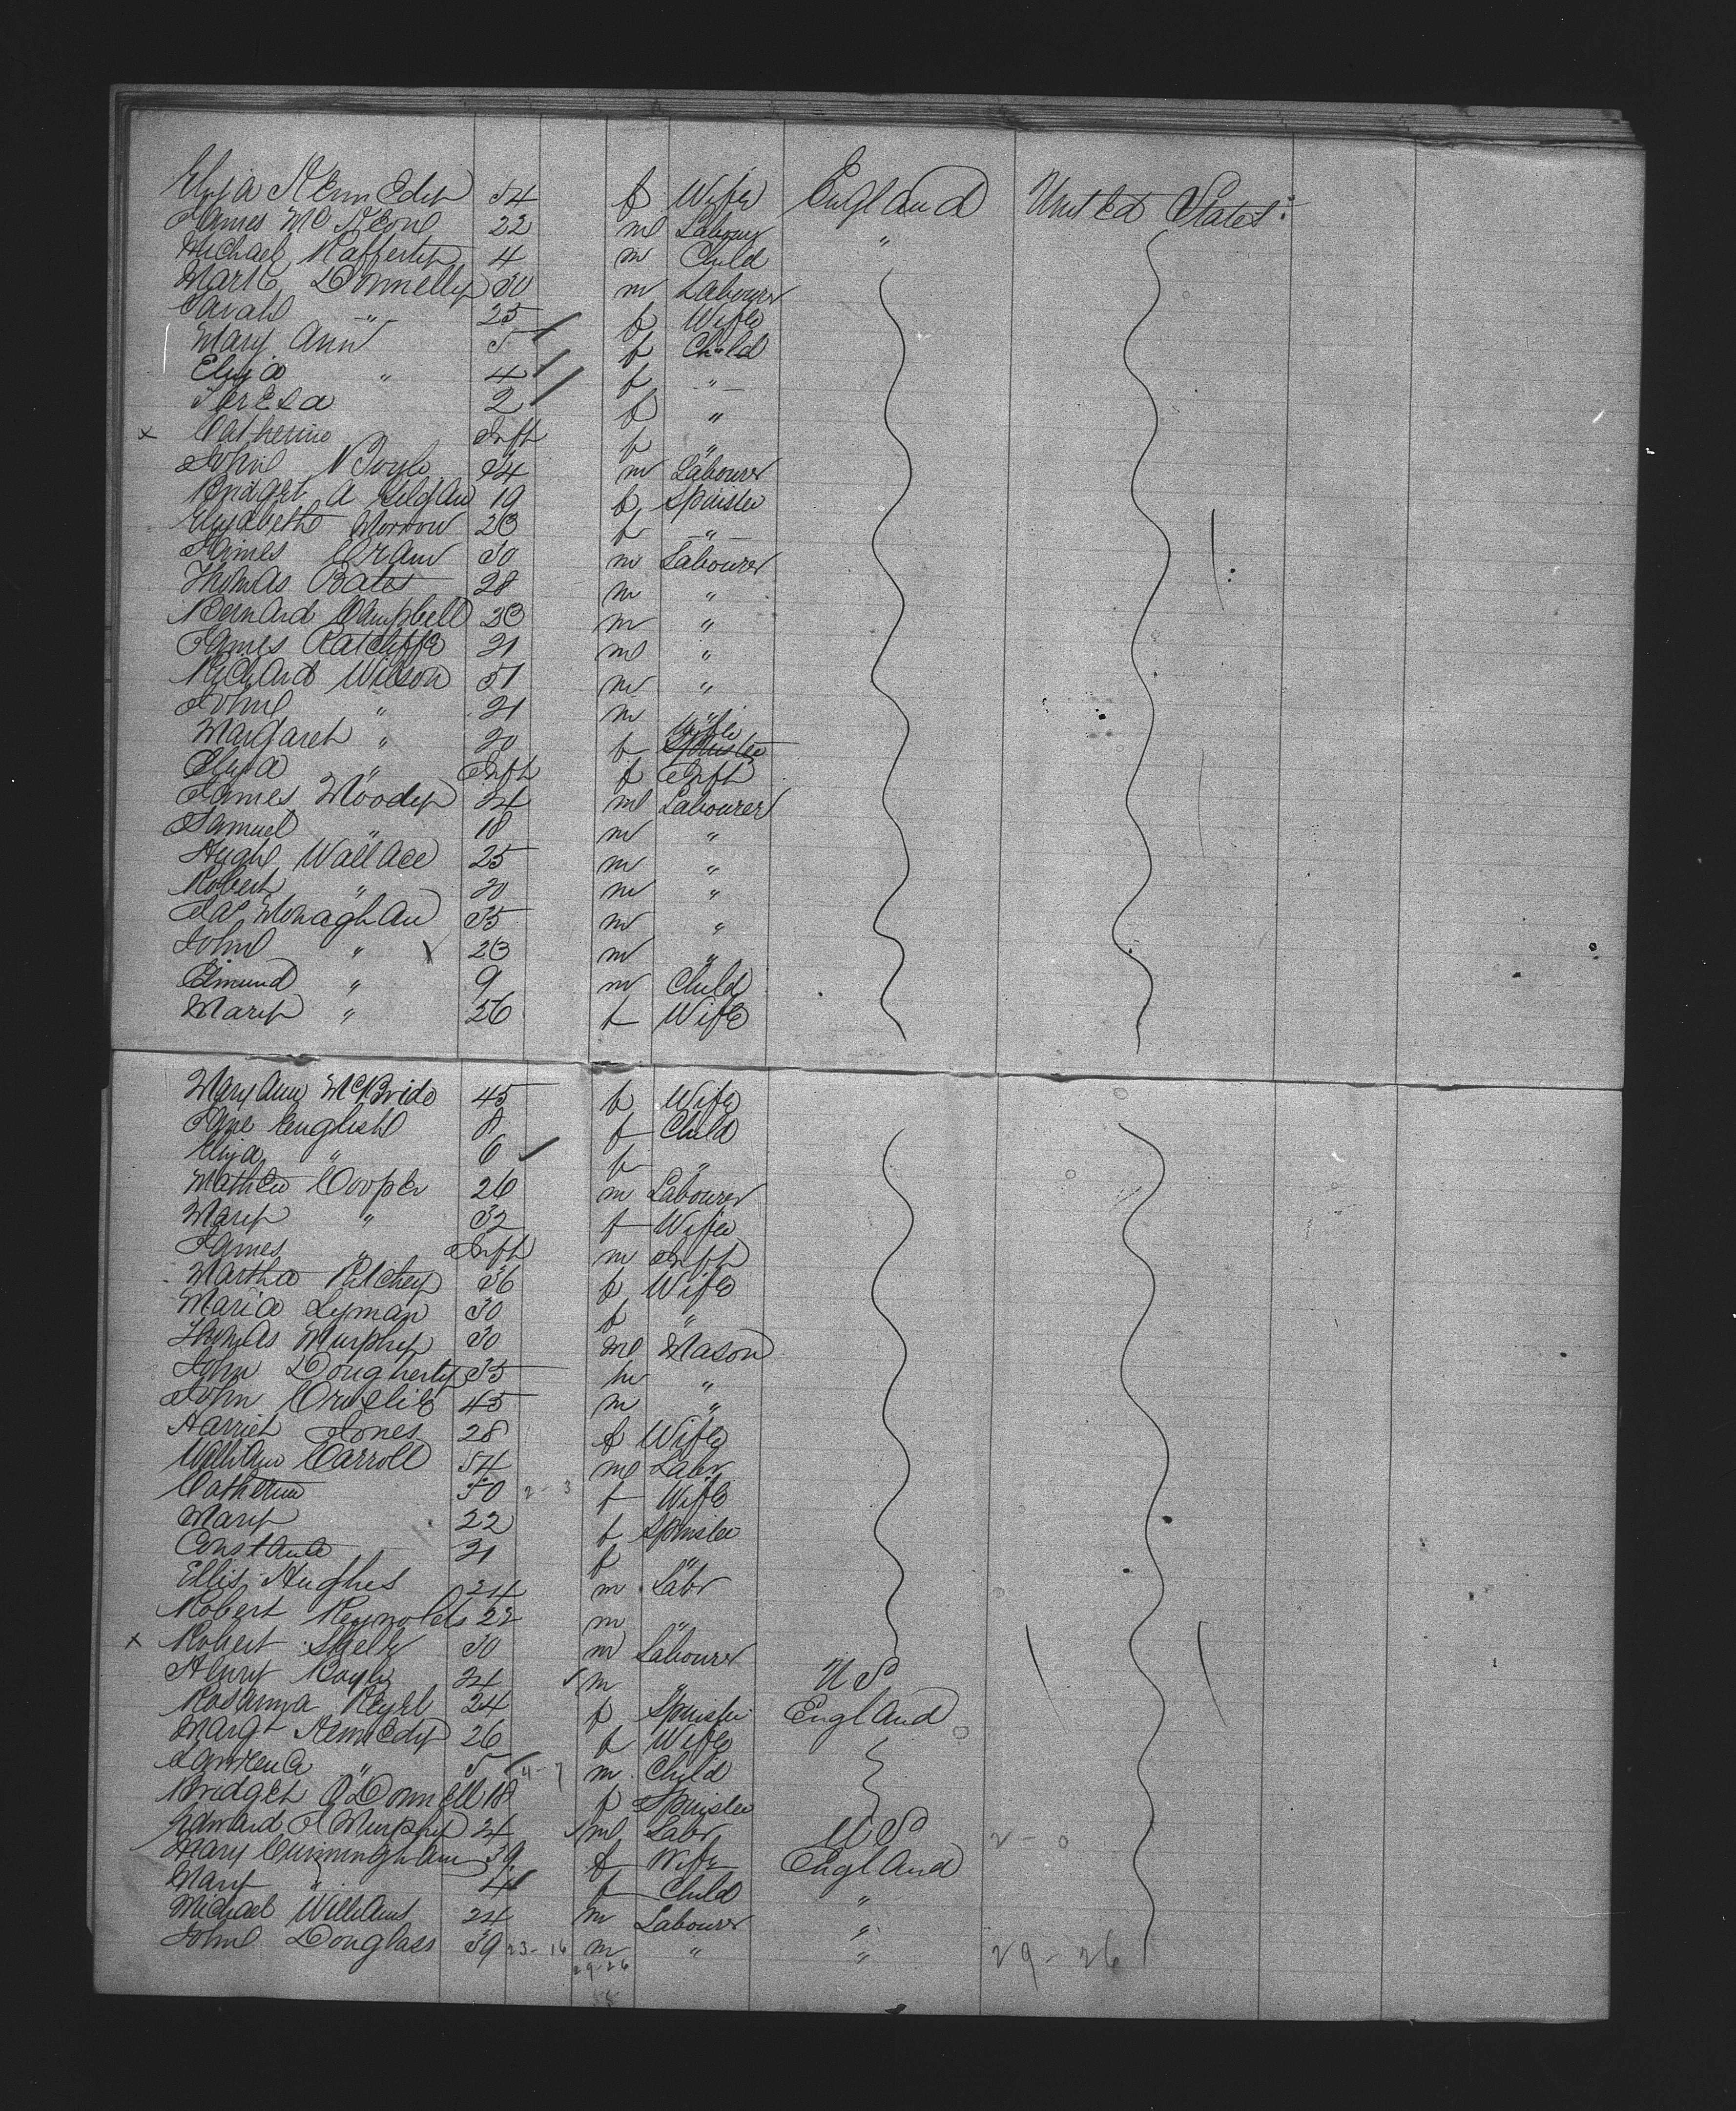 Eliza Kennedy 34 f Wife England United States
James McKeone 22 m Labour "
Michael Rafferty 4 m Child
Mark Donnelly 30 m Labourer
Sarah " 25 f Wife
Mary Ann 5 f Child
Eliza " 4 f "
Teresa 2 f "
x Catherine Inft f "
John Boyle 34 m Labourer
Bridget A 19 f Spinster
Elizabeth Morrow 23 f "
James Cram 30 m Labourer
Thomas Bates 28 m "
Bernard Campbell 23 m "
James Ratcliffe 21 m "
Richard Wilson 51 m "
John " 21 m "
Margaret " 20 f Wife Spinster
Eliza " Inft f Inft
James Moody 24 m Labourer
Samuel " 18 m "
Hugh Wallace 25 m "
Robert " 20 m "
Jas Monaghan 35 m "
John " 23 m "
Edmund " 9 m Child
Mary " 36 f Wife
Mary Ann McBride 45 f Wife
Jane English 8 f Child
Eliza " 6 f "
Mathew Cooper 26 m Labourer
Mary " 32 f Wife
James " Inft m Inft
Martha Pitchey 36 f Wife
Maria Lyman 30 f "
Thomas Murphy 30 m Mason
John Dougherty 35 m "
John 45 m "
Harriet Jones 28 f Wife
William Carroll 54 m Labr
Catherine 50 2-3 f Wife
Mary 22 f Spinster
Constance 21 f "
Ellis Hughes 24 m Labr
Robert Reynolds 22 m "
x Robert Skelly 30 m Labourer
Henry Boyle 24 m " U S
Rosanna 24 f Spinster England
Margt Kennedy 26 f Wife
Lawrence " 5 4-7 m Child
Bridget O'Donnell 18 f Spinster
Edward J Murphy 24 m Labr U S 2-0
Mary Cunningham 39 f Wife England
Mary " 4 f Child "
Michael Williams 24 m Labourer "
John Douglass 39 23-16 m " " 29-26
29-26